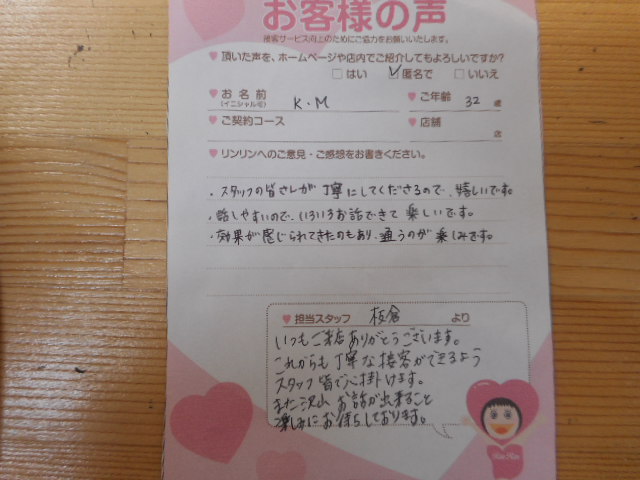 お客様の声
接客サービス向上のためにご協力をお願いいたします。
頂いた声を、ホームページや店内でご紹介してもよろしいですか?
□はい ☑匿名で □いいえ
お名前 K・M ご年齢 32 歳
(イニシャル可)
ご契約コース 店舗 店
リンリンへのご意見・ご感想をお書きください。
・スタッフの皆さんが丁寧にしてくださるので、嬉しいです。
・話しやすいので、いろいろお話できて楽しいです。
・効果が感じられてきたのもあり、通うのが楽しみです。
担当スタッフ 板倉 より
いつもご来店ありがとうございます。
これからも丁寧な接客ができるよう
スタッフ皆で心掛けます。
また沢山お話が出来ること
楽しみにお待ちしております。
Rin Rin